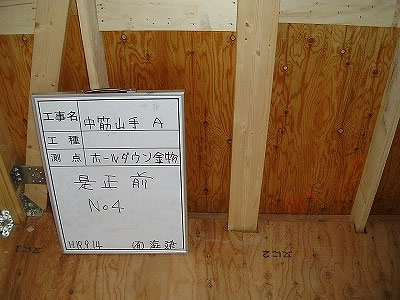 工事名 中筋山手 A
工種
測点 ホールダウン金物
是正前
No4
H18 9.14